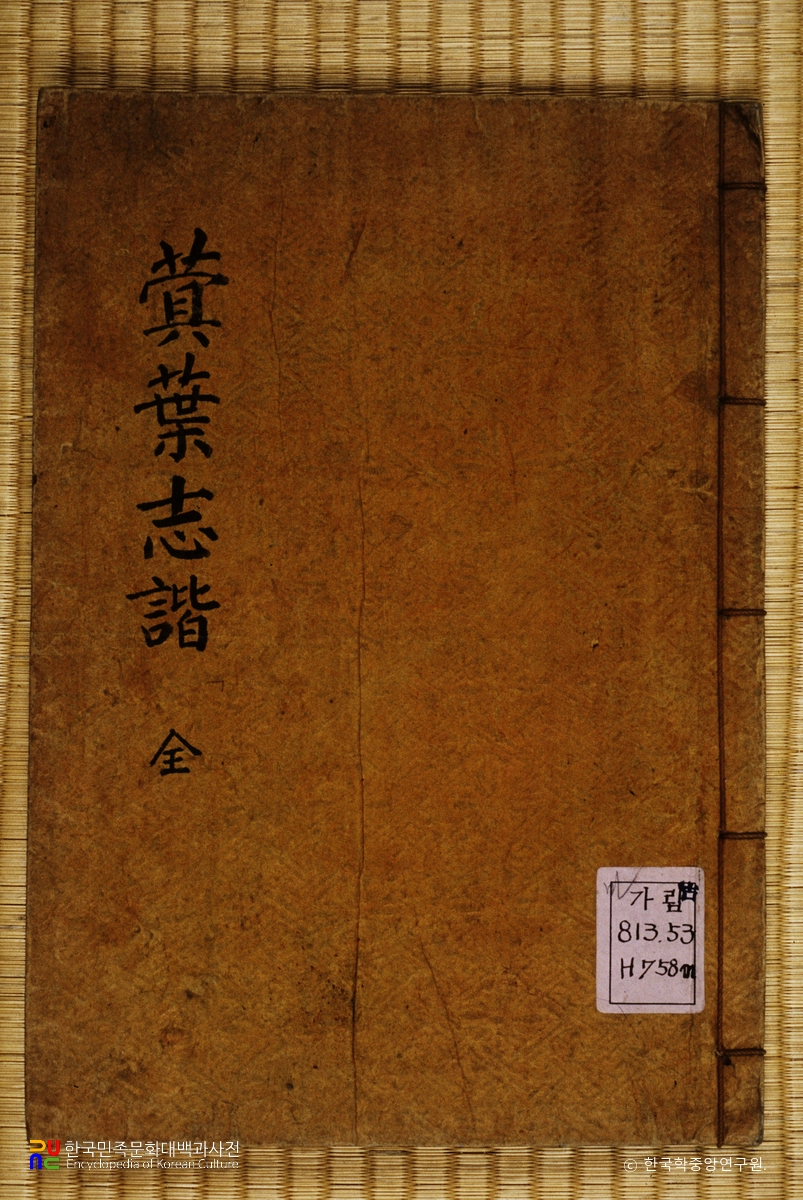 蓂葉志諧
全
가림
813.53
H758m
한국민족문화대백과사전
Encyclopedia of Korean Culture
ⓒ 한국학중앙연구원